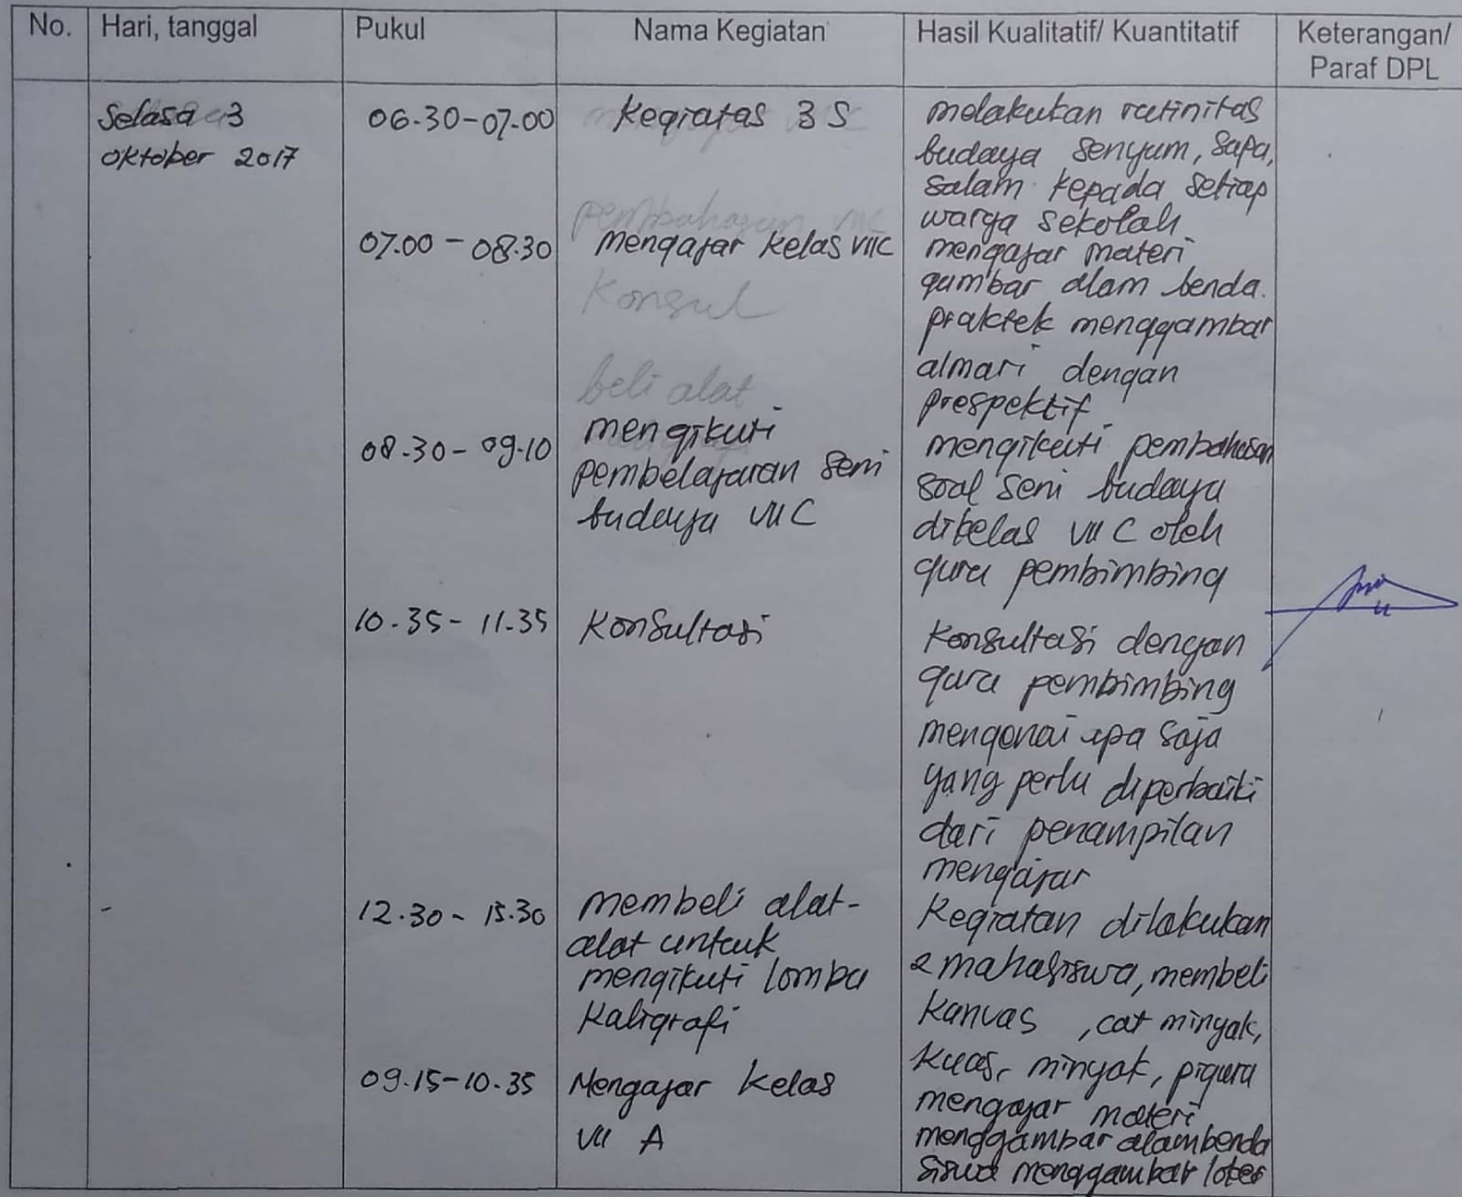 No. Hari, tanggal Pukul Nama Kegiatan Hasil Kualitatif/ Kuantitatif Keterangan/
Paraf DPL
Selasa 3
Oktober 2017
06.30-07.00
Kegiatas 3 S
melakukan rutinitas
budaya senyum, sapa,
salam kepada setiap
warga sekolah
07.00 - 08.30
pembahasan VIIC
mengajar kelas VIIC
Konsul
beli alat
mengajar materi
gambar alam benda.
praktek menggambar
almari dengan
prespektif
08.30 - 09.10
mengikuti
pembelajaran seni
budaya VII C
mengikuti pembahasan
soal seni budaya
dikelas VII C oleh
guru pembimbing
10.35 - 11.35
Konsultasi
Konsultasi dengan
guru pembimbing
mengenai apa saja
yang perlu diperbaiki
dari penampilan
mengajar
12.30 - 15.30
membeli alat-
alat untuk
mengikuti lomba
Kaligrafi
Kegiatan dilakukan
2 mahasiswa, membeli
kanvas , cat minyak,
kuas, minyak, pigura
09.15-10.35
Mengajar kelas
VII A
mengajar materi
menggambar alam benda
siswa menggambar loker